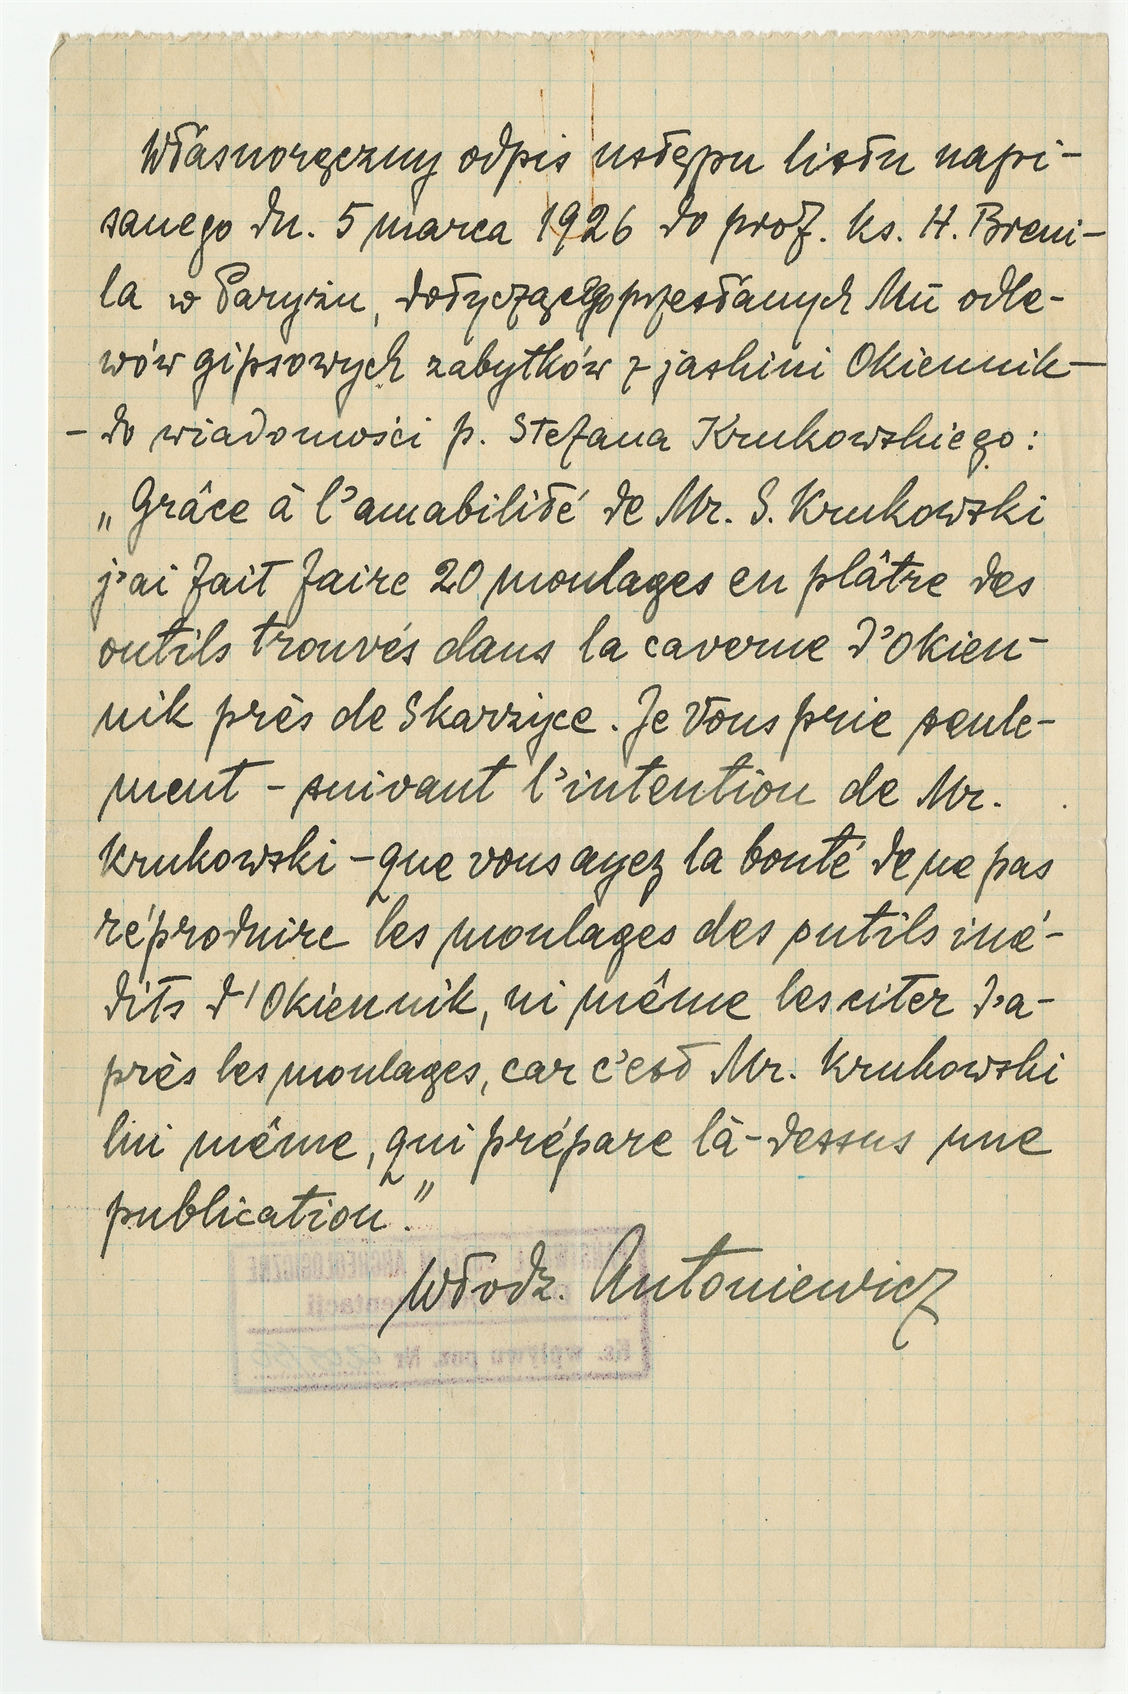 Własnoręczny odpis ustępu listu napi-
sanego dn. 5 marca 1926 do prof. ks. H. Breui-
la w Paryżu, dotyczącego przesłanych Mu odle-
wów gipsowych zabytków z jaskini Okiennik –
– do wiadomości p. Stefana Krukowskiego:
„Grâce à l'amabilité de Mr. S. Krukowski
j'ai fait faire 20 moulages en plâtre des
outils trouvés dans la caverne d'Okien-
nik près de Skarżyce. Je Vous prie seule-
ment – suivant l'intention de Mr.
Krukowski – que vous ayez la bonté de ne pas
réproduire les moulages des outils iné-
dits d'Okiennik, ni même les citer d'a-
près les moulages, car c'est Mr. Krukowski
lui même, qui prépare là-dessus une
publication."
Włodz. Antoniewicz
ARCHEOLOGICZNE
Ks. wpływu poz. Nr